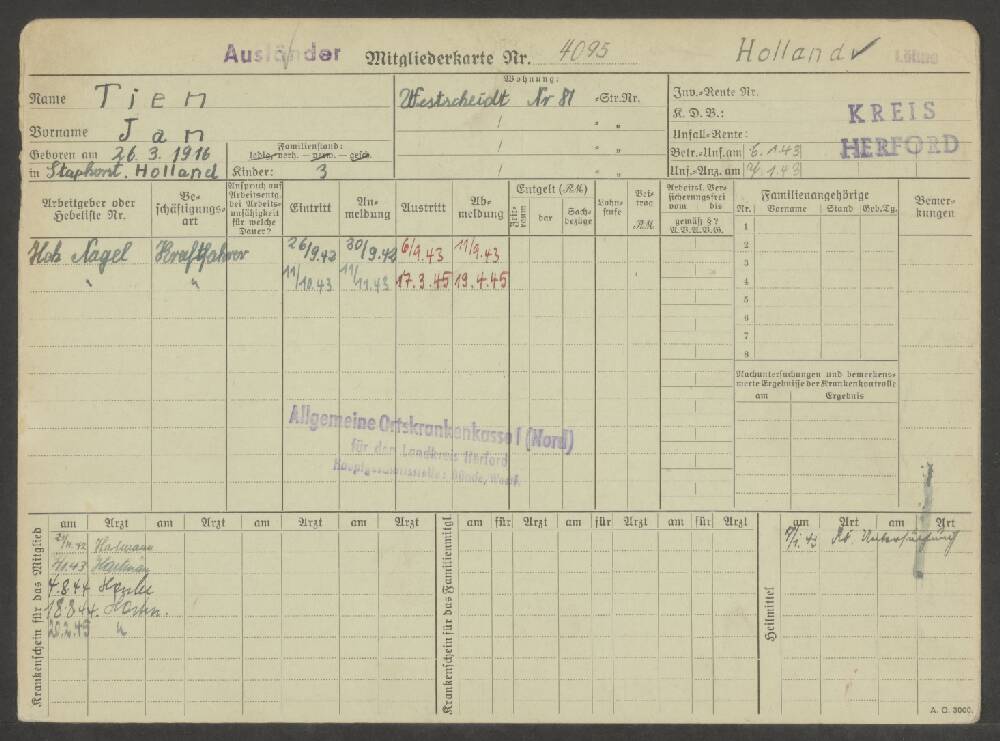 Ausländer Mitgliederkarte Nr. 4095 Holland ✓ Löhne
Name Tien
Vorname Jan
Geboren am 26.3.1916
in Staphorst, Holland
Familienstand:
ledig, verh. — verw. — gesch.
Kinder: 3
Wohnung:
Westscheidt Nr 81 -Str. Nr.
/ " "
/ " "
/ " "
Inv.-Rente Nr.
K. D. B.:
Unfall-Rente:
Betr.-Unf. am 6.1.43
Unf.-Anz. am 7.1.43
KREIS
HERFORD
Arbeitgeber oder Hebeliste Nr.
Beschäftigungsart
Anspruch auf Arbeitsentg. bei Arbeitsunfähigkeit für welche Dauer?
Eintritt
Anmeldung
Austritt
Abmeldung
Entgelt (RM)
Zeitraum
bar
Sachbezüge
Lohnstufe
Beitrag RM
Arbeitsl. Versicherungsfrei
vom bis
gemäß § ?
A.V.A.V.G.
Familienangehörige
Nr. Vorname Stand Geb.Tg.
Bemerkungen
Nagel Kraftfahrer 26/9.42 30/9.42 6/9.43 11/9.43
" " 11/10.43 11/11.43 17.3.45 19.4.45
1
2
3
4
5
6
7
8
Nachuntersuchungen und bemerkenswerte Ergebnisse der Krankenkontrolle
am Ergebnis
Allgemeine Ortskrankenkasse I (Nord)
für den Landkreis Herford
Hauptgeschäftsstelle: Bünde, Westf.
Krankenschein für das Mitglied
am Arzt am Arzt am Arzt am Arzt
4.8.44
18.8.44
20.2.45 "
Krankenschein für das Familienmitgl.
am für Arzt am für Arzt am für Arzt
Heilmittel
am Art am Art
Untersuchung
A. O. 3000.